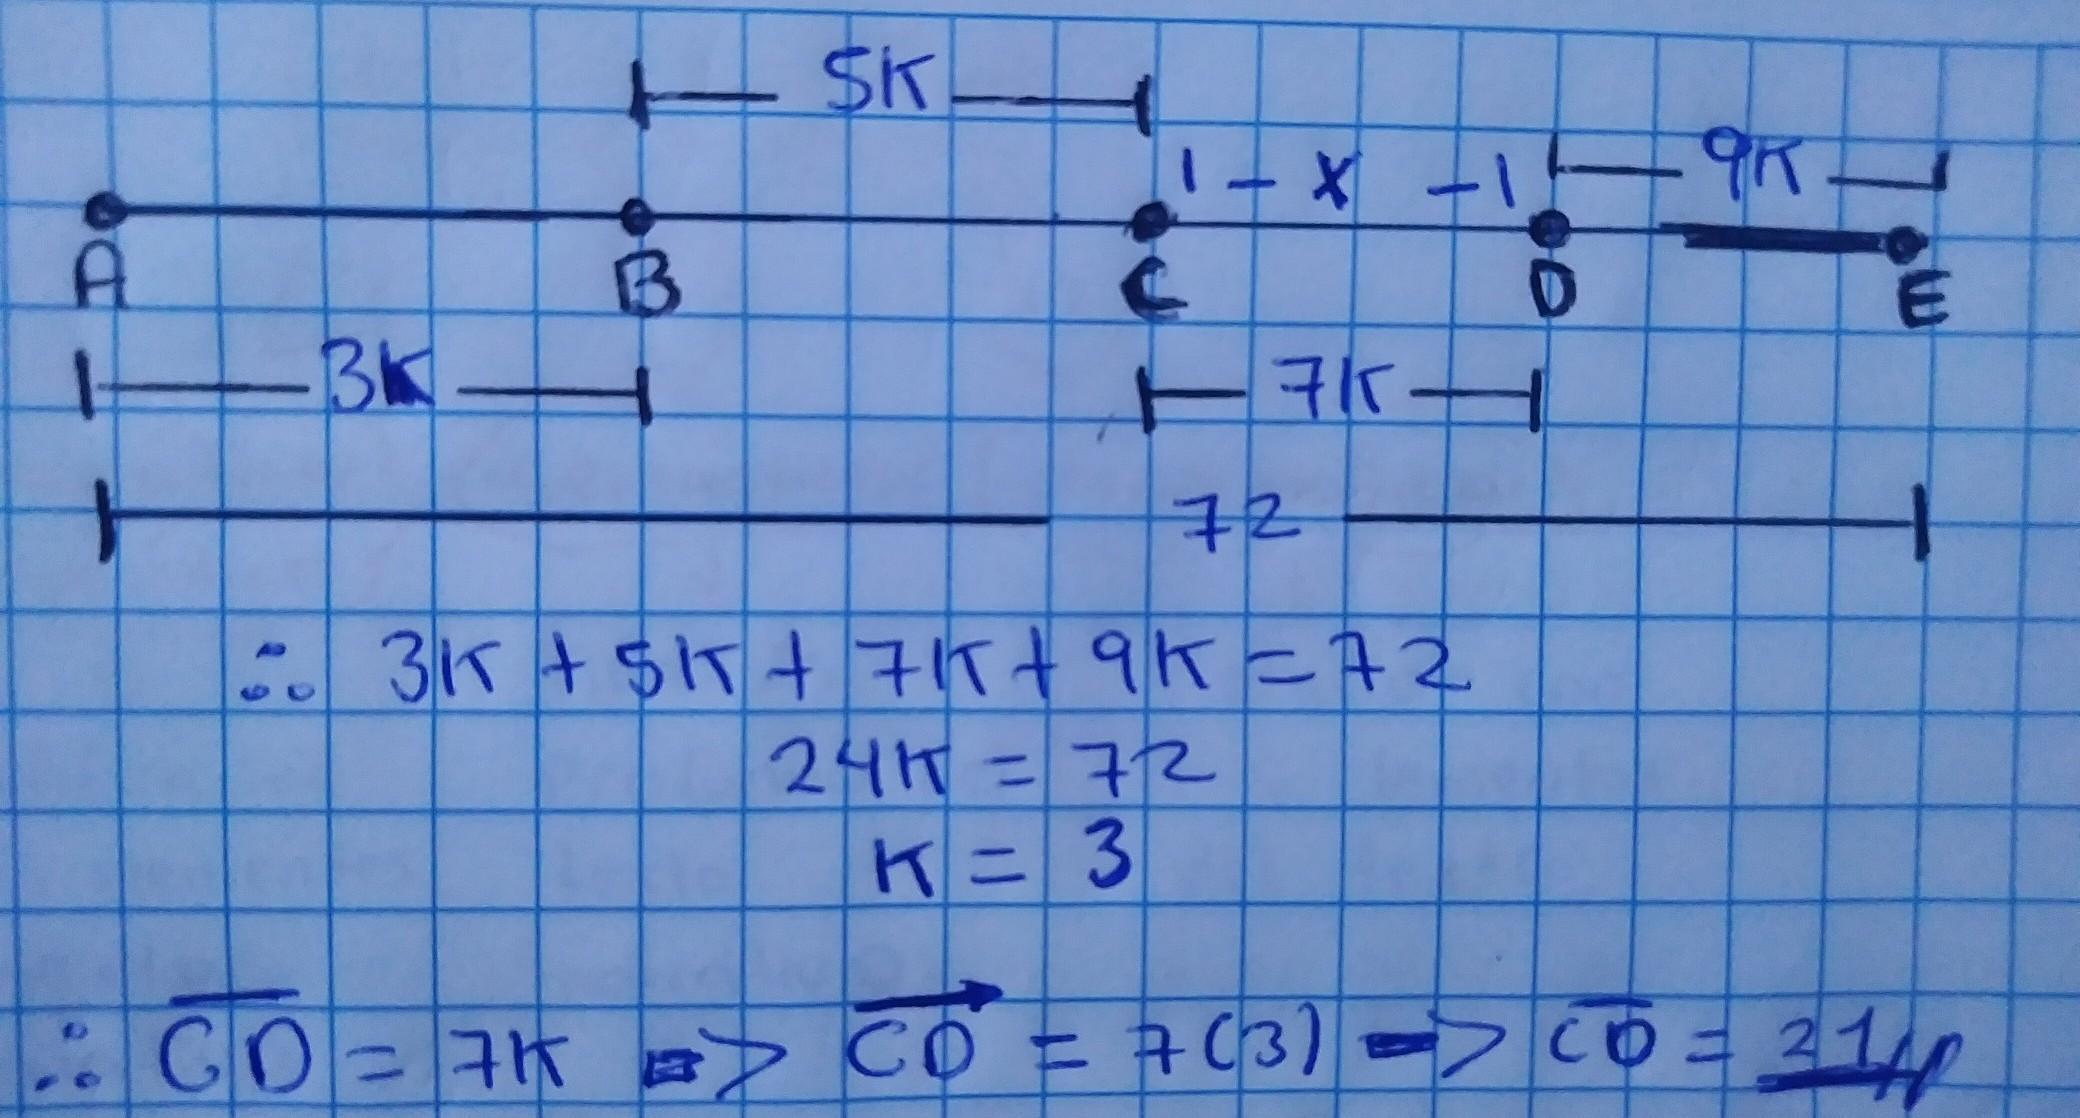 5K
1 - x - 1 9K
A B C D E
3K 7K
72
∴ 3K + 5K + 7K + 9K = 72
24K = 72
K = 3
∴ CD = 7K => CD = 7(3) => CD = 21